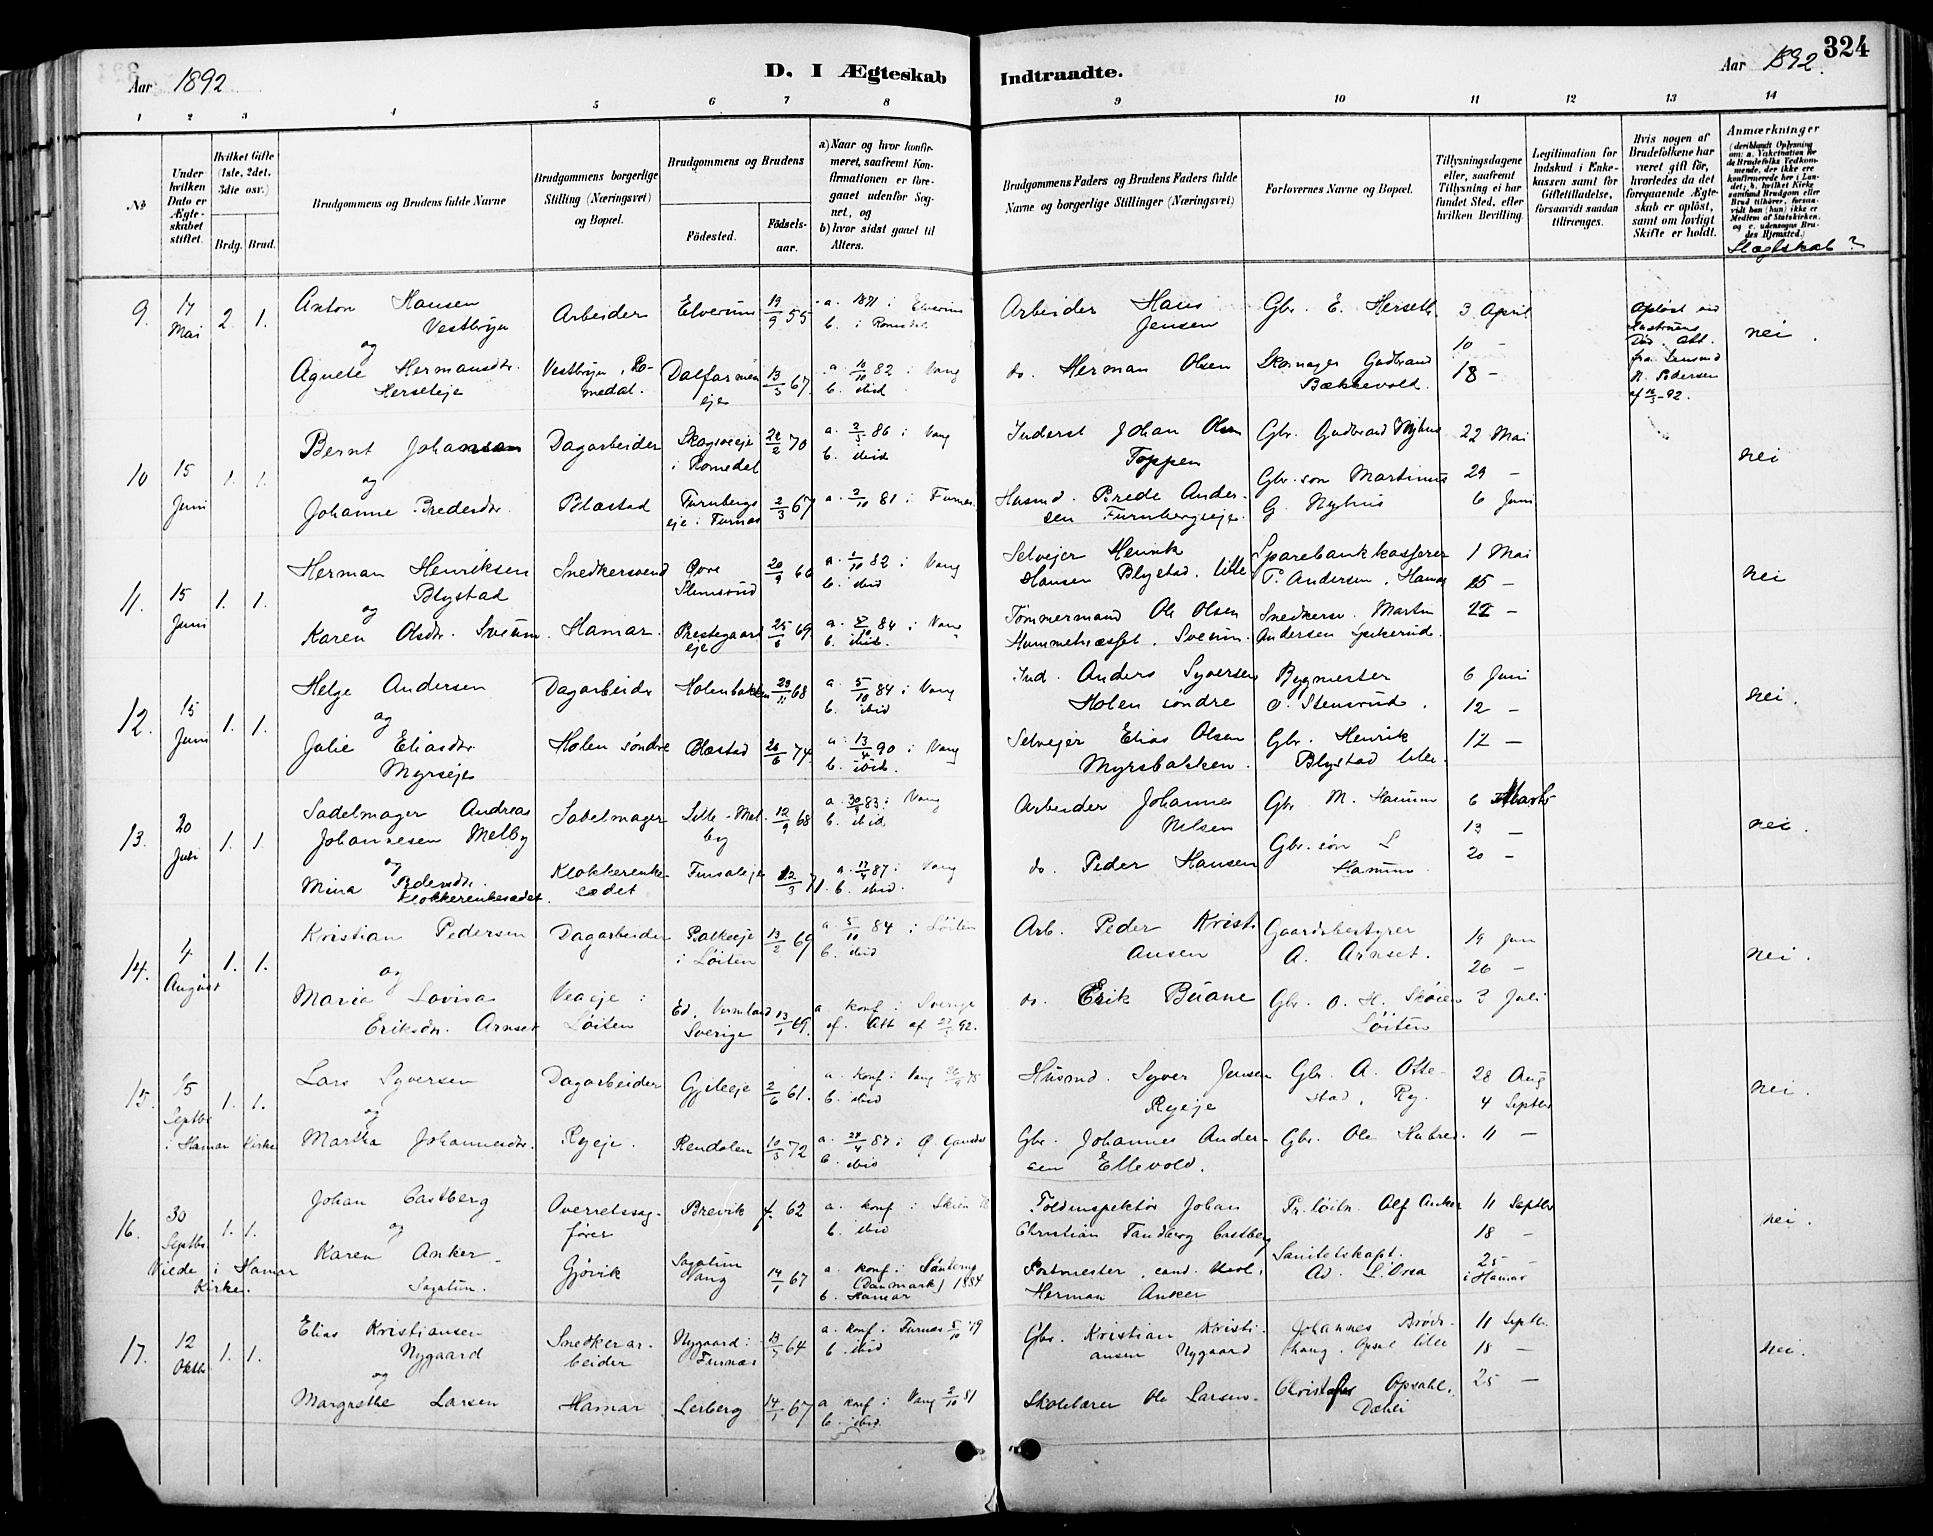 Aar 1892
D. I Ægteskab Indtraadte.
Aar 1892.
324
1 2 3 4 5 6 7 8 9 10 11 12 13 14
No
Under hvilken Dato er Ægteskabet stiftet.
Hvilket Gifte (1ste, 2det, 3die osv.)
Brdg. Brud.
Brudgommens og Brudens fulde Navne
Brudgommens borgerlige Stilling (Næringsvei) og Bopæl.
Brudgommens og Brudens
Födested. Födselsaar.
a) Naar og hvor konfirmeret, saafremt Konfirmationen er foregaaet udenfor Sognet, og
b) hvor sidst gaaet til Alters.
Brudgommens Faders og Brudens Faders fulde Navne og borgerlige Stillinger (Næringsvei)
Forlovernes Navne og Bopæl.
Tillysningsdagene eller, saafremt Tillysning ei har fundet Sted, efter hvilken Bevilling.
Legitimation for Indskud i Enkekassen samt for Giftetilladelse, forsaavidt saadan tiltrænges.
Hvis nogen af Brudefolkene har været gift før, hvorledes da det foregaaende Ægteskab er opløst, samt om lovligt Skifte er holdt.
Anmærkninger
Slægtskab?
9. 14 Mai 2. 1.
Anton Hansen
Vestbyn
og
Agnete Hermansdtr.
Herseteje
Arbeider
Vestbyn, Romedal.
Elverum 19/9 55
a. 1871 i Elverum
b. i Romedal
Dalfarmeneje 13/5 67.
a. 10/10 82 i Vang
b. ibid
Arbeider Hans
Jensen
do. Herman Olsen
Gbr. E. Herseth.
Skomager Gudbrand
Bækkevold.
3 April
10 -
18 -
nei.
10 15 Juni 1. 1.
Bernt Johansen
og
Johanne Bredesdtr.
Dagarbeider
Blæstad
Skogsveje
i Romedal 22/2 70
a. 2/5 86 i Vang
b. ibid
Furnbergs
eje i Furnæs 2/3 67
a. 2/10 81 i Furnes.
Inderst Johan Olsen
Toppen
Husmd. Brede Andersen
Furnbergseje.
Gbr. Gudbrand Nyhus
Gbr. søn Martinus
G. Nyhus
22 Mai
29 -
6 Juni
nei
11. 15 Juni 1. 1.
Herman Henriksen
Blystad
og
Karen Olsdtr. Sveum
Snedkersvend
Hamar.
Øvre
Stensrud 20/9 66
a. 1/10 82 i Vang
b. ibid
Prestegaards
eje 25/6 69
84 i Vang
b. ibid.
Selvejer Henrik
Hansen Blystad. lille
Tömmermand Ole Olsen
Sveum.
Sparebankkasserer
P. Andersen, Hamar
Snedkersv. Martin
Andersen Spikerud.
1 Mai
15 -
22 -
nei
12. 15 Juni 1. 1.
Helge Andersen
og
Julie Eliasdtr.
Myrseje
Dagarbeider
Holen søndre
Holenbakken 29/11 68
a. 5/10 84 i Vang
b. ibid
Blæstad 26/6 74
a. 13/4 90 i Vang
b. ibid.
Ind. Anders Syversen
Holen söndre
Selvejer Elias Olsen
Myrsbakken.
Bygmester
O. Stensrud.
Gbr. Henrik
Blystad lille.
6 Juni
12 -
17 -
nei.
13. 20 Juli 1. 1.
Sadelmager Andreas
Johannesen Melby
og
Mina Pedersdtr.
Klokkerenkesædet.
Sadelmager
Klokkerenkesædet
Lille-Melby 12/9 68
a. 30/9 83 i Vang
b. ibid.
Finsaleje 12/3 71.
a. 17/4 87 i Vang
b. ibid.
Arbeider Johannes
Nilsen
do. Peder Hansen
Gbr M. Hamum
Gbr. søn L
Hamum
6 Marts
13 -
20 -
nei.
14. 4. August 1. 1.
Kristian Pedersen
og
Maria Lovisa
Eriksdtr. Arnset
Dagarbeider
Veaeje i
Løiten
Bakkeeje
i Løiten 13/2 69
a. 5/10 84 i Löiten
b. ibid
Ed, Vermland
Sverige 13/1 69.
a konf i Sverige
cf. Att af 27/3 92.
Arb. Peder Kristiansen
do. Erik Buane
Gaardsbestyrer
A. Arnset.
Gbr. O. H. Skøien
Löiten
19 Juni
26 -
3 Juli
nei.
15. 15 Septbr i Hamar Kirke 1. 1.
Lars Syversen
og
Martha Johannesdtr.
Dagarbeider
Ryeje.
Gjileeje 2/6 61.
a. konf i Vang 26/9 75
b. ibid
Rendalen 10/5 72
a. 24/4 87 i Ø. Gausdal
b. ibid
Husmd. Syver Jensen
Ryeje
Gbr. Johannes Andersen
Ellevold.
Gbr. A. Ottestad, Ry.
Gbr. Ole Hubred.
28 Aug
4 Septbr
11 -
nei.
16. 30 Septbr. Viede i Hamar Kirke. 1. 1.
Johan Castberg
og
Karen Anker
Sagatun.
Overretssagfører
Gjøvik
Brevik 62
a. konf i Skien 78
b. ibid
Sagatun
Vang 14/1 67
a. konf i
(Danmark) 1884
b. Hamar
Toldinspektør Johan
Christian Tandberg Castberg
Postmester, cand. theol.
Herman Anker
Pr. löitn. Alf Anker
Sanitetskapt.
Ad. L. Orsa
11 Septbr
18 -
25 -
i Hamar
nei.
17. 12 Oktbr. 1. 1.
Elias Kristiansen
Nygaard
og
Margrethe Larsen
Snedkerarbeider
Hamar
Nygaard i
Furnæs 13/7 64
a. konf. Furnæs 5/10 79
b. ibid
Lerberg 14/1 67
a konf i Vang 2/10 81
b. ibid.
Gbr. Kristian Kristiansen
Nygaard
Skolelærer Ole Larsen
Johannes Brødshaug, Opsal lille
Christofer Opsahl,
11 Septbr.
18 -
25 -
nei.